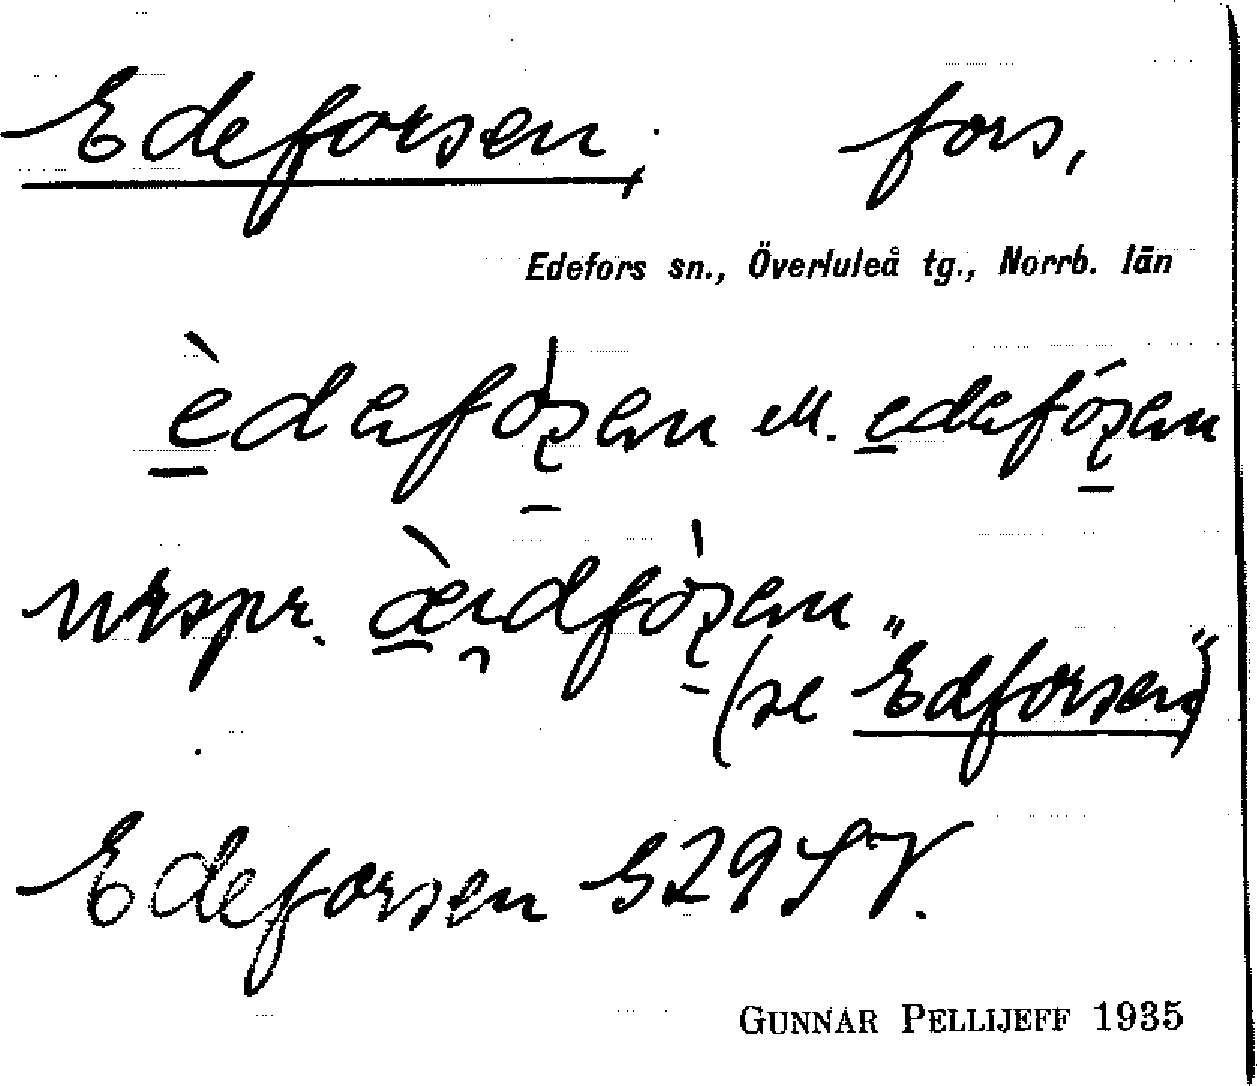 Edeforsen, fors,
Edefors sn., Överluleå tg., Norrb. län
èdefòʂen ell. edefóʂen
urspr. æ̀ɹdfòʂen
(se "Edforsen")
Edeforsen G29SV.
GUNNAR PELLIJEFF 1935